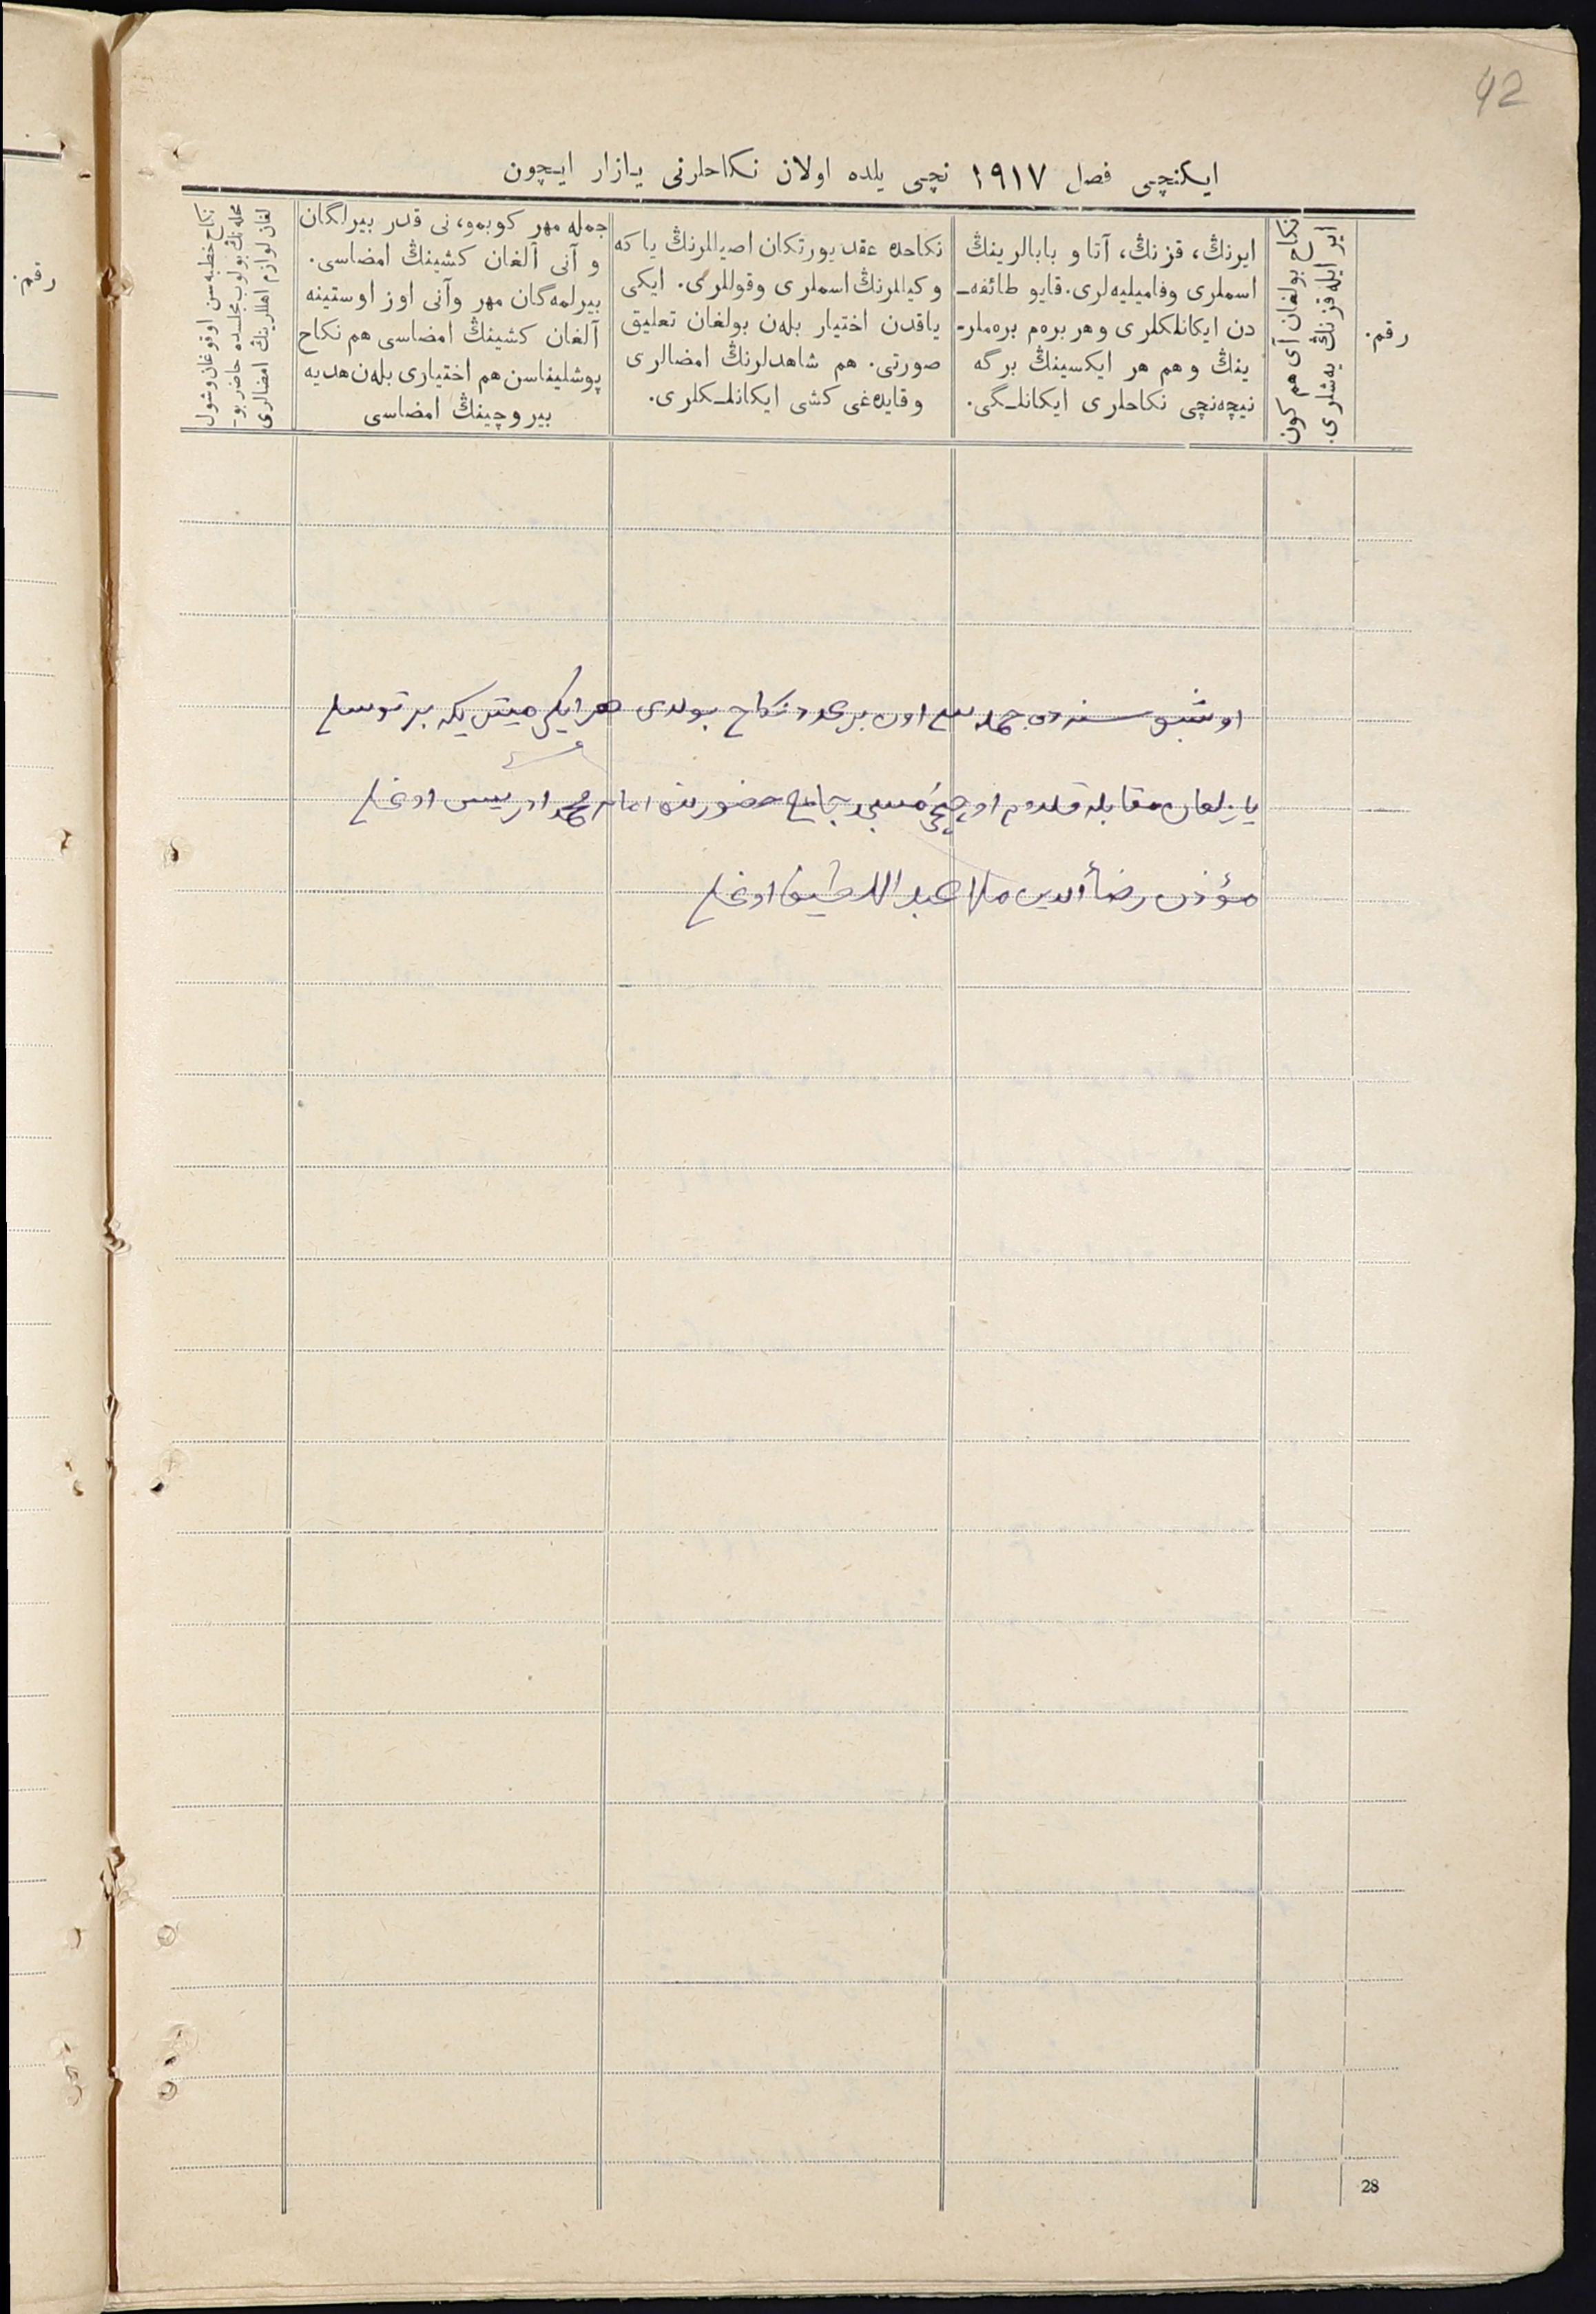 42
ایکنچی فصل ۱۹۱۷ نچی یلده اولان نکاحلرنی یازار ایچون
رقم.
نکاح بولغان آی هم کون
ایر ایله قزنڭ یه‌شلری.
ایرنڭ، قزنڭ، آتا و بابالرینڭ
اسملری وفامیلیه‌لری. قایو طائفه‌ـ
دن ایکانلکلری وهر بره‌م بره‌ملر-
ینڭ و هم هر ایکسینڭ برگه
نیچه‌نچی نکاحلری ایکانلـگی.
نکاحده عقد یورتکان اصیللرنڭ یا که
وکیللرنڭ اسملری وقوللری. ایکی
یاقدن اختیار بله‌ن بولغان تعلیق
صورتی. هم شاهدلرنڭ امضالری
وقایده‌غی کشی ایکانلـکلری.
جمله مهر کوبمو، نی قدر بیرلگان
و آنی آلغان کشینڭ امضاسی.
بیرلمه‌گان مهر وآنی اوز اوستینه
آلغان کشینڭ امضاسی هم نکاح
پوشلیناسن هم اختیاری بله‌ن هدیه
بیروچینڭ امضاسی
نکاح خطبه‌سن اوقوغان وشول
محله‌نڭ بولوب مجلسده حاضر بو-
لغان لوازم اهللرینڭ امضالری
اوشبو سنه‌ده جمله‌سی اون بر عدد نکاح بولدی هر ایکی میتریکه بر توسلی
یازلغان مقابله قلدوم اوچنچی مسجد جامع حضورنده امام محمد ادریس اوغلی
مؤذن رضاء الدین ملا عبد اللطیف اوغلی
28
رقم.